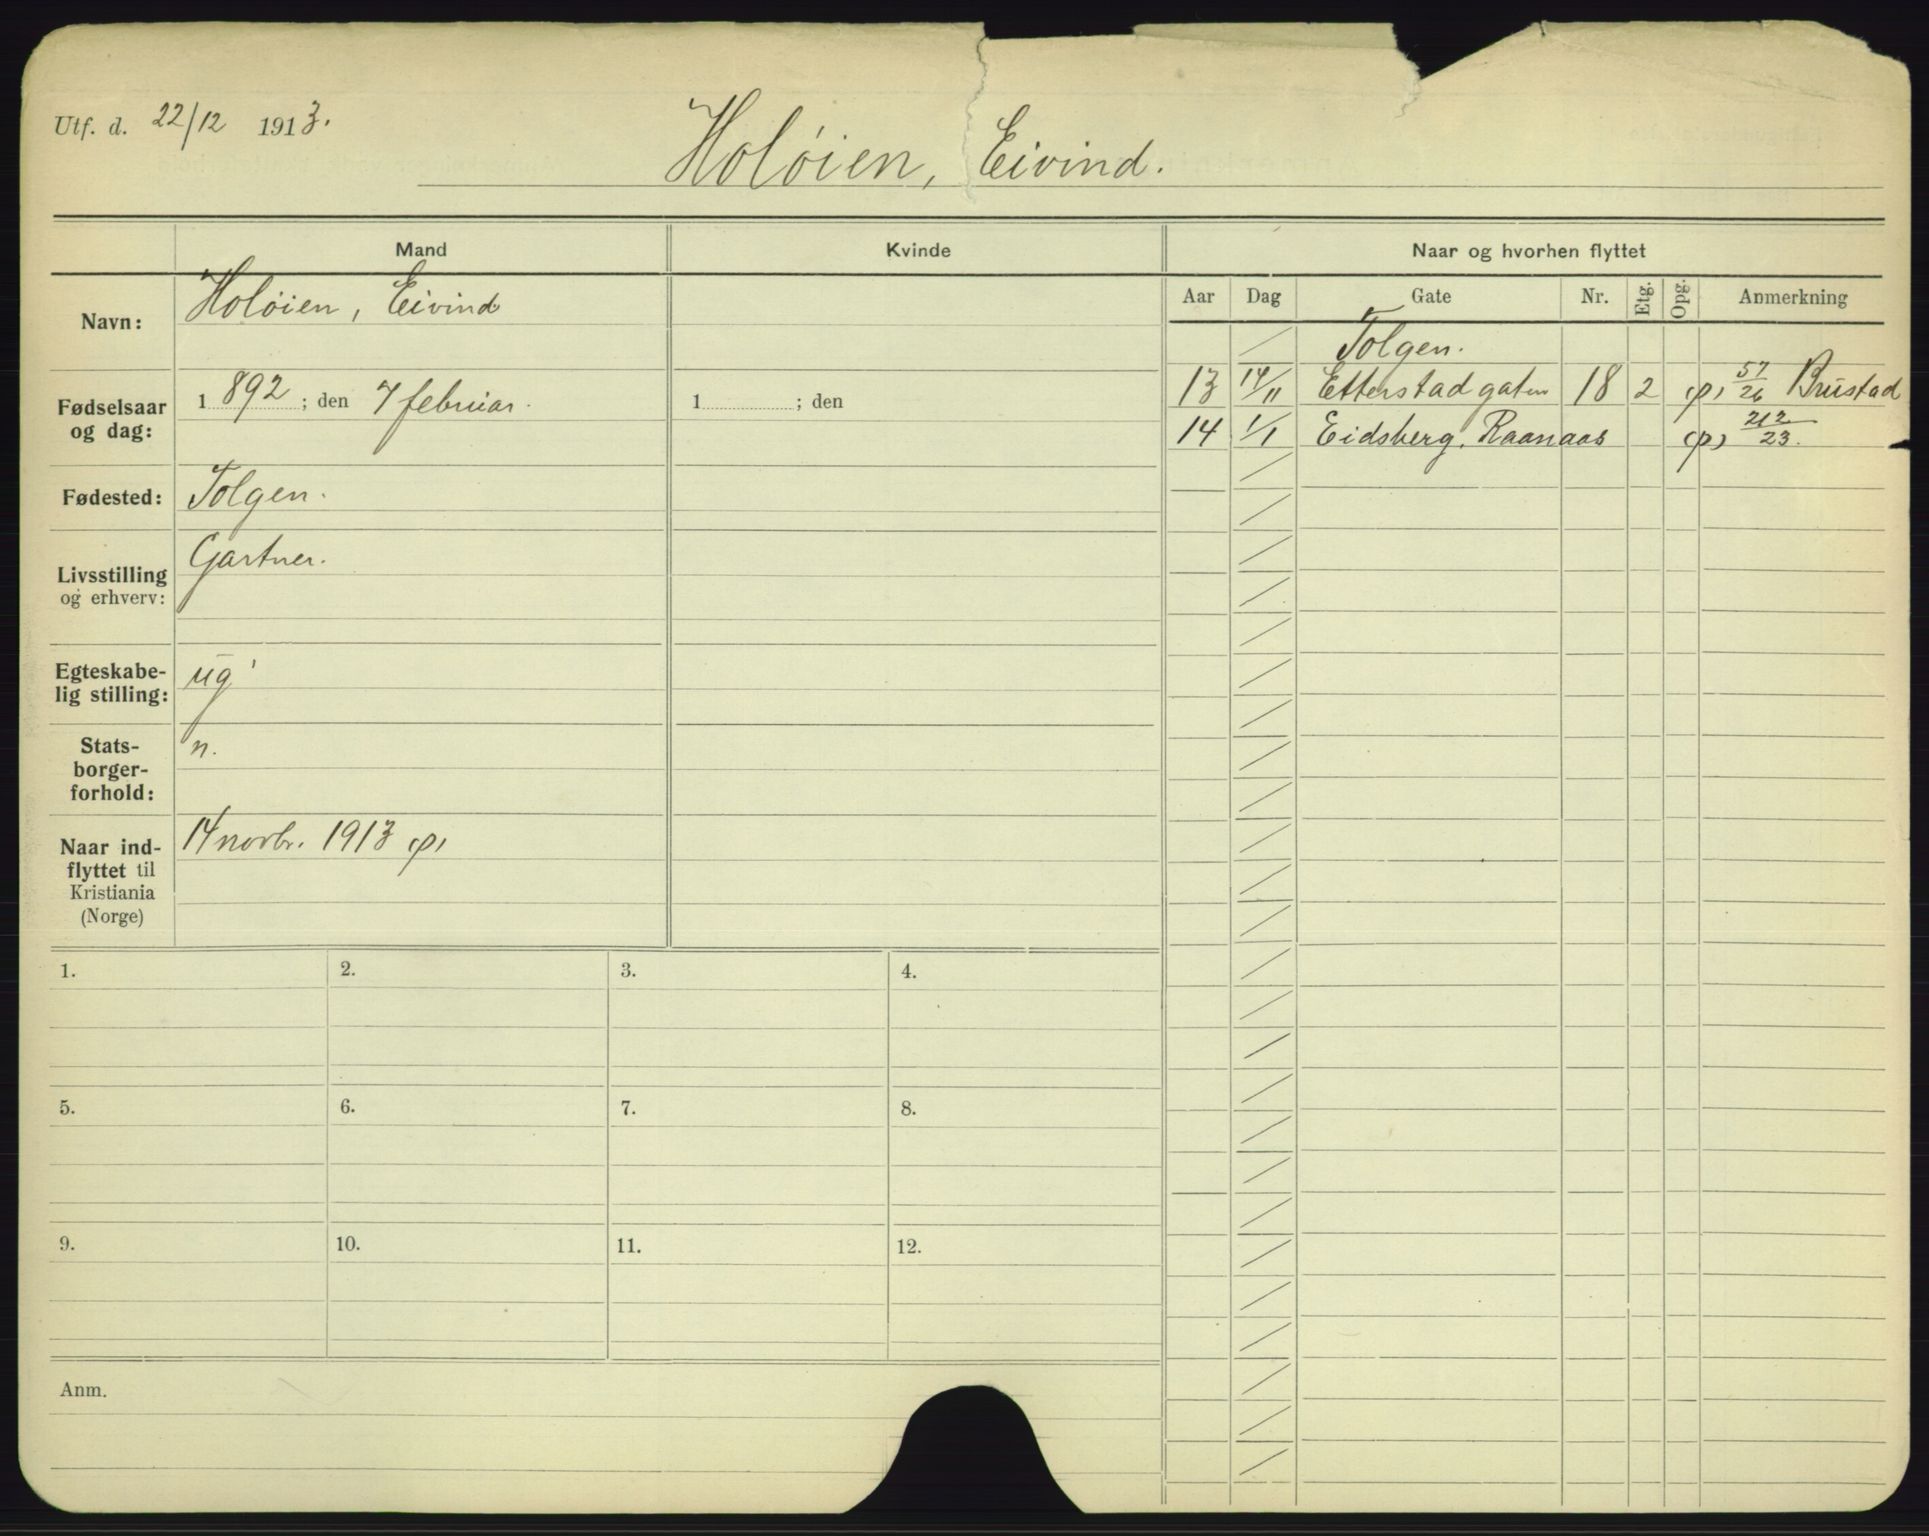 Utf. d. 22/12 1913.
Holøien, Eivind.
Mand
Kvinde
Naar og hvorhen flyttet
Navn:
Holøien, Eivind
Aar
Dag
Gate
Nr.
Etg.
Opg.
Anmerkning
Tolgen.
13 14/11 Etterstadgaten 18 2 (p) 57/26 Brustad
14 1/1 Eidsberg, Raanaas (p) 212/23.
Fødselsaar
og dag:
1892; den 7 februar.
1 ; den
Fødested:
Tolgen.
Livsstilling
og erhverv:
Gartner.
Egteskabe-
lig stilling:
ug
Stats-
borger-
forhold:
n.
Naar ind-
flyttet til
Kristiania
(Norge)
14 novbr. 1913 (p)
1.
2.
3.
4.
5.
6.
7.
8.
9.
10.
11.
12.
Anm.